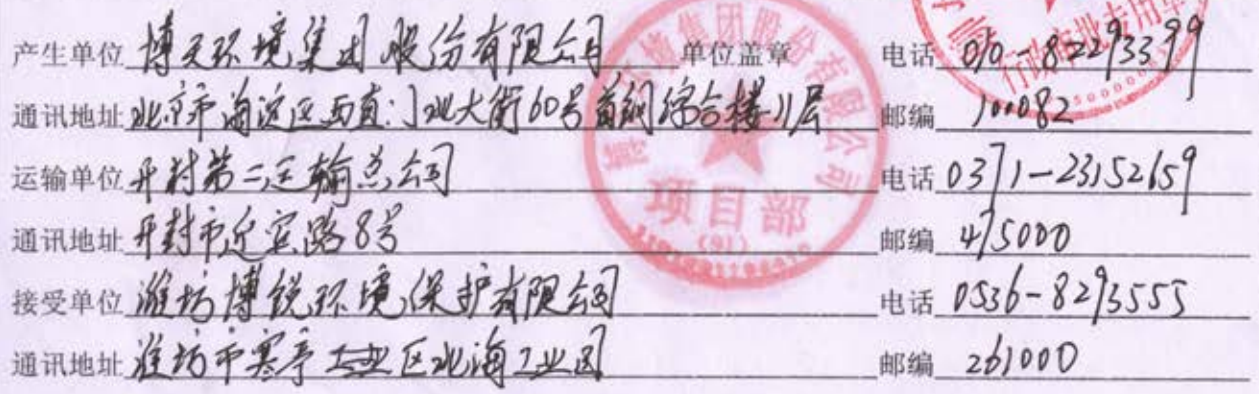 产生单位 博天环境集团股份有限公司 单位盖章 电话 010-82293399
通讯地址 北京市海淀区西直门北大街60号首钢综合楼11层 邮编 100082
运输单位 开封第二运输总公司 电话 0371-23152659
通讯地址 开封市迎宾路8号 邮编 475000
接受单位 潍坊博锐环境保护有限公司 电话 0536-8293555
通讯地址 潍坊市寒亭工业区北海工业园 邮编 261000
博天环境集团股份有限公司
项目部
(91)
行政事业专用章